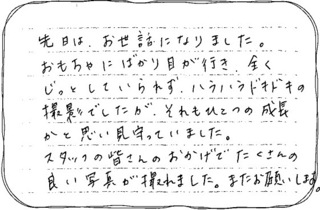 先日は、お世話になりました。
おもちゃにばかり目が行き、全く
じっとしていられず、ハラハラドキドキの
撮影でしたが、それもひとつの成長
かと思い見守っていました。
スタッフの皆さんのおかげでたくさんの
良い写真が撮れました。またお願いします。